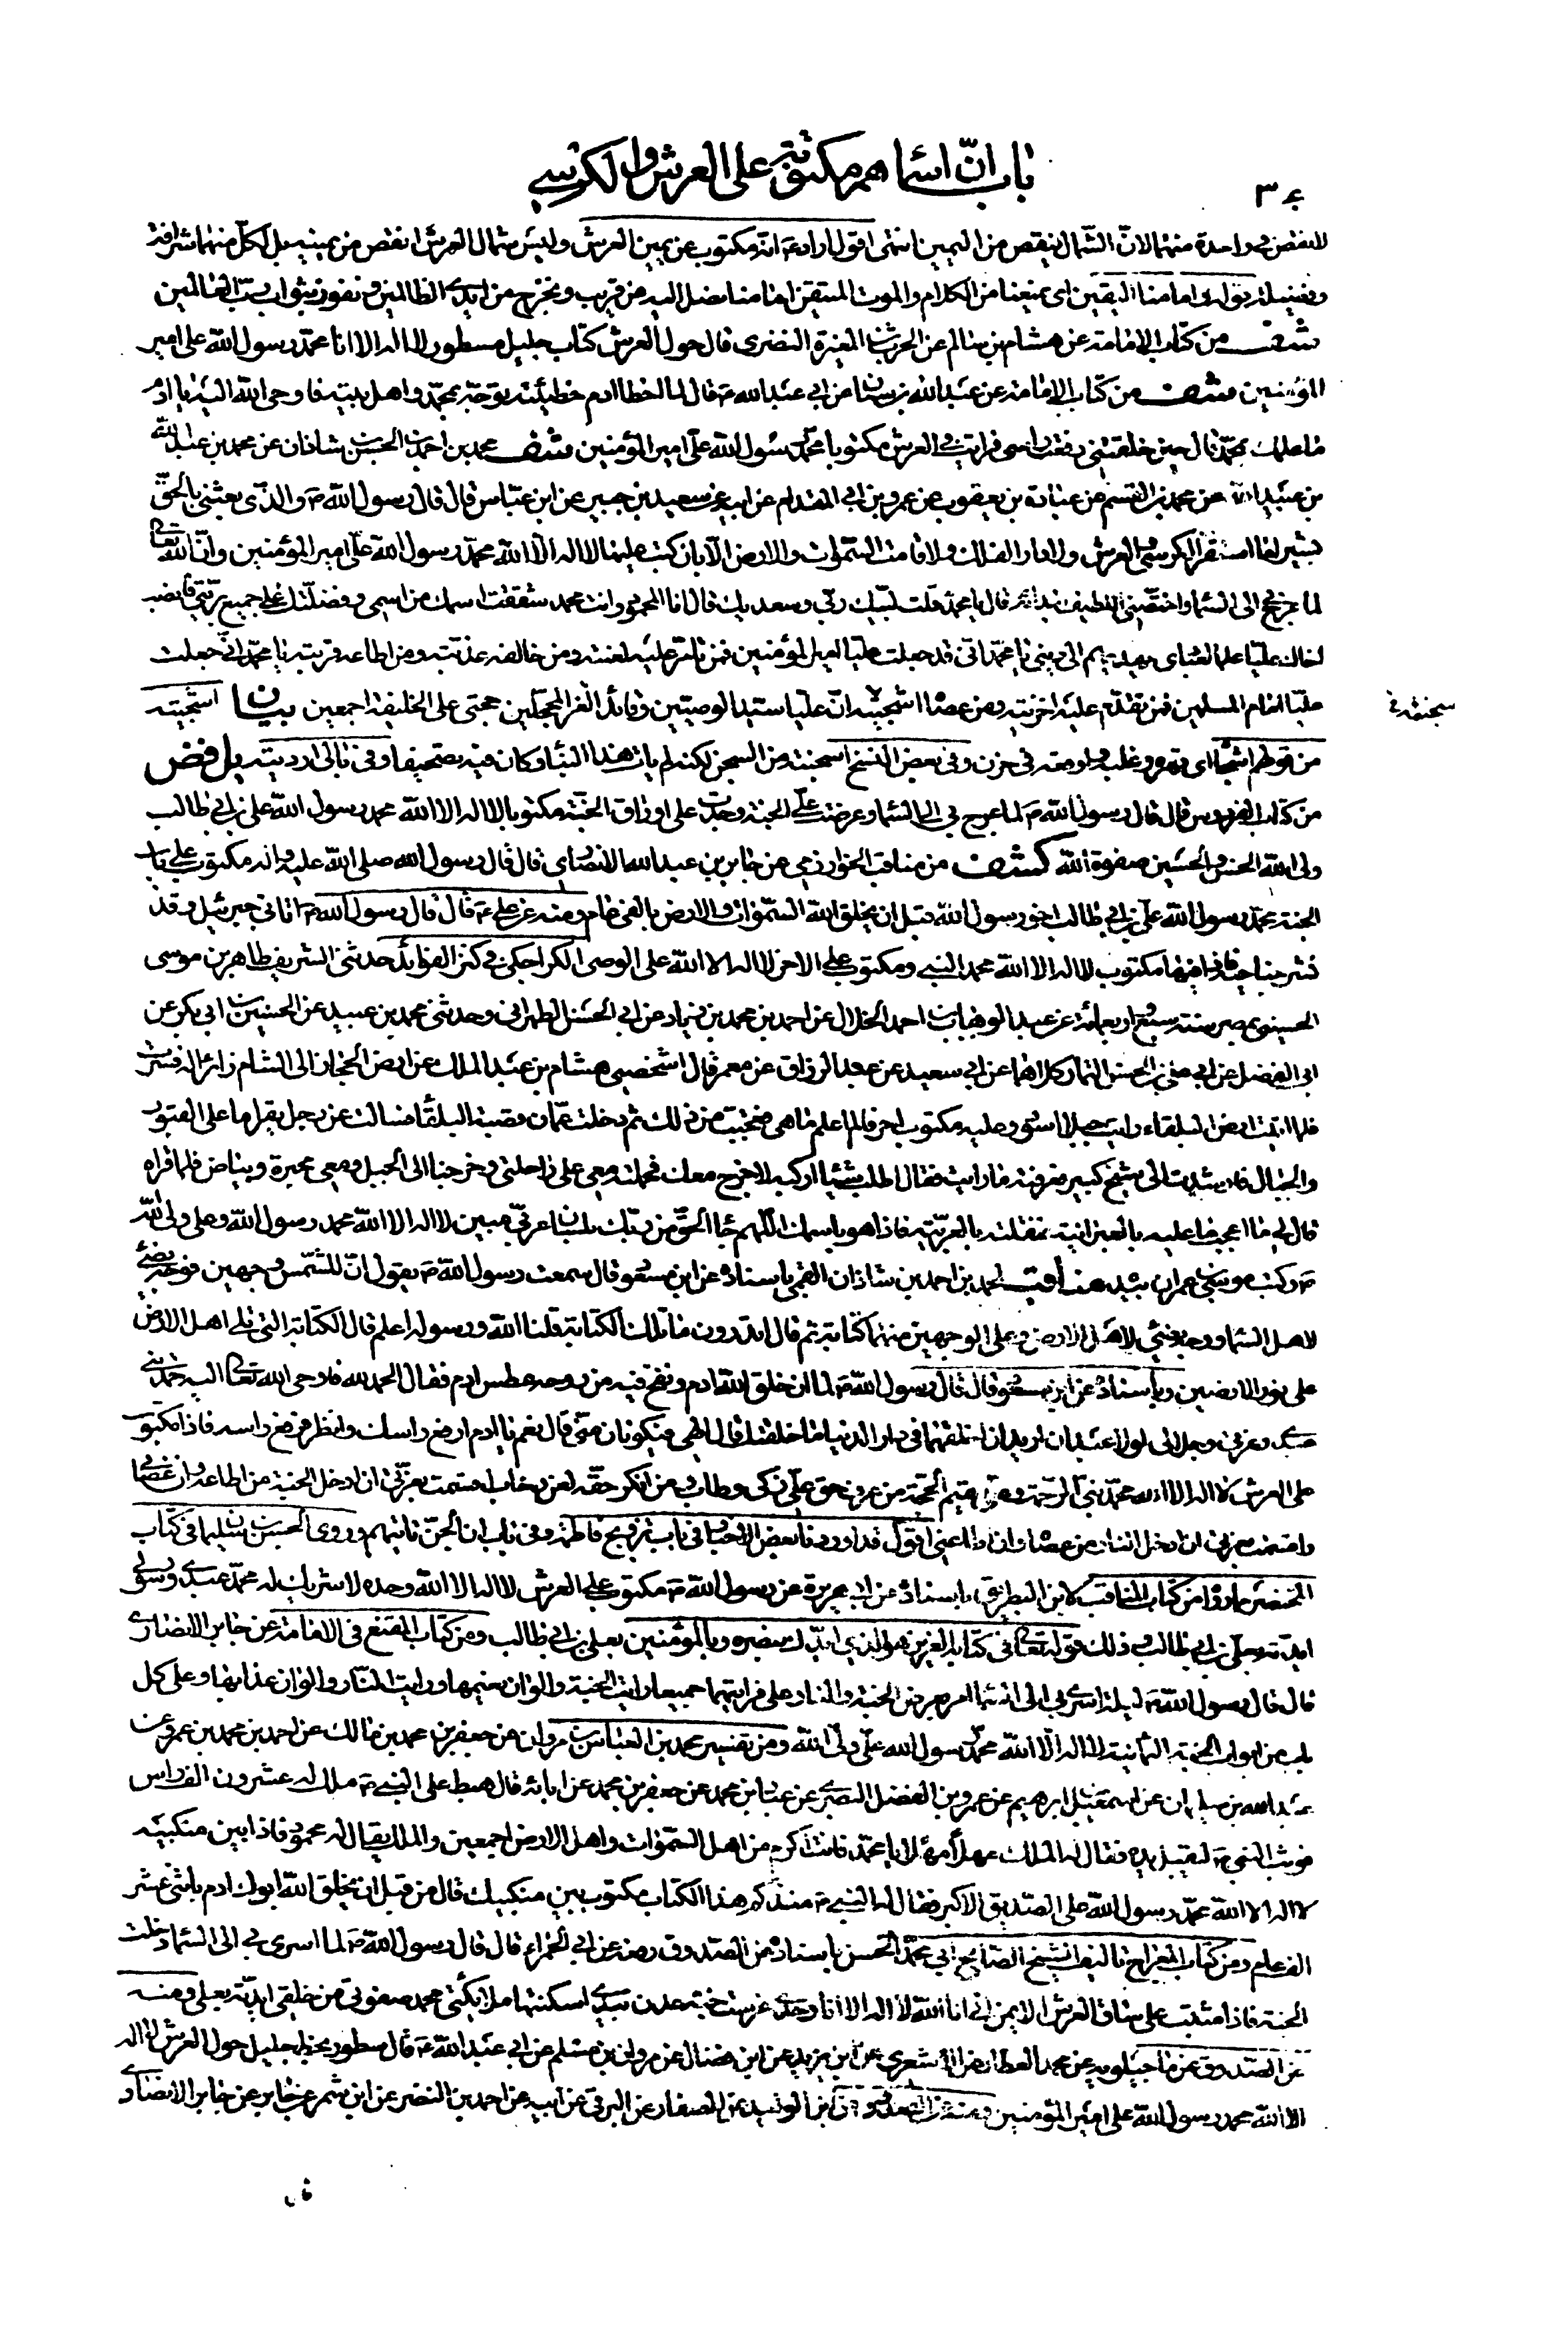 باب انّ اسماءهم مكتوبة على العرش والكرسي
٣٤
للنقص في واحدة منهما لانّ الشمال ينقص من اليمين انتهى اقول اراد ع انه مكتوب عن يمين العرش وليس شمال العرش انقص من يمينه بل لكلّ منهما شرافة
وفضيلة قوله امامنا اليقين اى يمنعنا من الكلام والموت المتيقن امامنا نصل اليه من قريب ونخرج من ايدى الظالمين ونفوز بثواب ربّ العالمين
شف من كتاب الامامة عن هشام بن سالم عن الحرث بن المغيرة النضرى قال حول العرش كتاب جليل مسطور لا اله الا انا محمد رسول الله على امير
المؤمنين شف من كتاب الامامة عن عبد الله بن سنان عن ابى عبد الله ع قال لما اخطا ادم خطيئته توجّه بمحمّد واهل بيته فاوحى الله اليه يا ادم
ما علمك بمحمّد قال حين خلقتنى رفعت راسى فرايت فى العرش مكتوبا محمد رسول الله علىّ امير المؤمنين شف محمد بن احمد بن الحسن بن شاذان عن محمد بن عبد الله
بن عبيد الله عن محمد بن القسم عن عباد بن يعقوب عن عمرو بن ابى المقدام عن ابيه عن سعيد بن جبير عن ابن عبّاس قال قال رسول الله ص والّذى بعثنى بالحقّ
بشيرا ما استقرّ الكرسى والعرش ولا دار الفلك ولا قامت السّموات والارض الّا بان كتب عليها لا اله الا الله محمّد رسول الله علىّ امير المؤمنين وانّ الله تعالى
لما عرج بى الى السّماء واختصّنى اللطيف بندائه قال يا محمّد قلت لبّيك ربّى وسعديك قال انا المحمود وانت محمد شققت اسمك من اسمى وفضلّتك على جميع بريّتى فانصب
اخاك عليّا علما لعبادى يهديهم الى دينى يا محمّد انّى قد جعلت عليّا امير المؤمنين فمن تامّر عليه لعنته ومن خالفه عذبته ومن اطاعه قربته يا محمّد انّى جعلت
عليّا امام المسلمين فمن تقدّم عليه اخزيته ومن عصاه اشجيته انّ عليّا سيّد الوصيّين وقائد الغرّ المحجّلين وحجتى على الخليقة اجمعين بيان اشجيته
سجنته خ
من قولهم اشجاه اى قهره وغلبه واوقعه فى حزن وفى بعض النسخ اسجنته من السجن لكنه لم يات هذا البناء وكان فيه تصحيفا وفى بالى ارديته يل فض
من كتاب الفردوس قال قال رسول الله ص لما عرج بى الى السّماء وعرضت علىّ الجنة وجدت على اوراق الجنّة مكتوبا لا اله الا الله محمد رسول الله على بن ابى طالب
ولى الله الحسن والحسين صفوة الله كشف من مناقب الخوارزمى عن جابر بن عبد الله الانصارى قال قال رسول الله صلى الله عليه واله مكتوب على باب
الجنة محمّد رسول الله علىّ بن ابى طالب اخو رسول الله قبل ان يخلق الله السّموات والارض بالفى عام ومنه عن على ع قال قال رسول الله ص اتانى جبرئيل وقد
نشر جناحيه فاذا فيهما مكتوب لا اله الا الله محمد النبى ومكتوب على الاخر لا اله الا الله على الوصى الكراجكى فى كنز الفوائد حدثنى الشريف طاهر بن موسى
الحسينى بمصر سنة سبع واربعمائة عن عبد الوهاب بن احمد الخلال عن احمد بن محمد بن زياد عن ابى الحسن الطهرانى وحدثنى محمد بن عبيد عن الحسين بن ابى بكر عن
ابى الفضل عن ابى على بن الحسن التمار كلاهما عن ابى سعيد عن عبد الرزاق عن معمر قال اشخصنى هشام بن عبد الملك عن ارض الحجاز الى الشام زائرا له فسرت
فلما اتيت ارض البلقاء رايت جبلا اسود وعليه مكتوب احرفا لم اعلم ما هى فعجبت من ذلك ثم دخلت عمّان قصبة البلقاء فسالت عن رجل يقرا ما على القبور
والجبال فارشدت الى شيخ كبير فعرفته ما رايت فقال اطلب شيئا اركبه لاخرج معك فحملته معى على راحلتى وخرجنا الى الجبل ومعى محبرة وبياض فلما قراه
قال لى ما اعجب ما عليه بالعبرانية فنقلته بالعربّية فاذا هو باسمك اللهم جاء الحقّ من ربّك بلسان عربى مبين لا اله الا الله محمد رسول الله وعلى ولى الله
ص وكتب موسى بن عمران بيده مناقب لمحمد بن احمد بن شاذان القمى باسناده عن ابن مسعود قال سمعت رسول الله ص يقول انّ للشّمس وجهين فوجه يضىء
لاهل السّماء ووجه يضىء لاهل الارض وعلى الوجهين منهما كتابة ثم قال اتدرون ما تلك الكتابة قلنا الله ورسوله اعلم قال الكتابة التى تلى اهل الارض
على نور الارضين وباسناده عن ابن مسعود قال قال رسول الله ص لما ان خلق الله ادم ونفخ فيه من روحه عطس ادم فقال الحمد لله فاوحى الله تعالى اليه حمدنى
عبدى وعزتى وجلالى لولا عبدان اريد ان اخلقهما فى دار الدنيا ما خلقتك قال الهى فيكونان منّى قال نعم يا ادم ارفع راسك وانظر فرفع راسه فاذا مكتوب
على العرش لا اله الا الله محمّد نبىّ الرحمة وعلىّ مقيم الحجّة من عرف حق علىّ زكى وطاب ومن انكر حقّه لعن وخاب اقسمت بعزّتى ان ادخل الجنة من اطاعه وان عصانى
واقسمت بعزتى ان ادخل النار من عصاه وان اطاعنى اقول قد اوردنا بعض الاخبار فى باب تزويج فاطمة وفى باب ان الجنّ تاتيهم وروى الحسن بن سليمان فى كتاب
المحتضر ما رواه من كتاب المناقب لابن البطريق باسناده عن ابى هريرة عن رسول الله ص مكتوب على العرش لا اله الا الله وحده لا شريك له محمّد عبدى ورسولى
ايدته بعلىّ بن ابى طالب وذلك قوله تعالى فى كتابه العزيز هو الّذى ايّدك بنصره وبالمؤمنين بعلى بن ابى طالب ومن كتاب المقنع فى الامامة عن جابر الانصارى
قال قال رسول الله ص ليلة اسرى بى الى السّماء امر بعرض الجنة والنار علىّ فرايتهما جميعا رايت الجنة والوان نعيمها ورايت النّار والوان عذابها وعلى كل
باب من ابواب الجنة الثمانية لا اله الّا الله محمّد رسول الله علىّ ولىّ الله ومن تفسير محمد بن العباس بن مروان عن جعفر بن محمد بن مالك عن احمد بن محمد بن عمرو عن
عبد الله بن سليمان عن اسمعيل بن ابرهيم عن عمرو بن الفضل البصرى عن عباد بن محمد عن جعفر بن محمد عن ابائه قال هبط على النبى ص ملك له عشرون الف راس
فوثب النبى ص ليقبل يده فقال له الملك مهلا مهلا يا محمّد فانت اكرم من اهل السّموات واهل الارض اجمعين والملك يقال له محمود فاذا بين منكبيه
لا اله الا الله محمّد رسول الله على الصّديق الاكبر فقال له النبى ص منذ كم هذا الكتاب مكتوب بين منكبيك قال من قبل ان يخلق الله ابوك ادم باثنى عشر
الف عام ومن كتاب المعراج تاليف الشيخ الصالح ابى محمّد الحسن باسناده عن الصّدوق عن ابى الحمراء قال قال رسول الله ص لما اسرى بى الى السّماء دخلت
الجنة فاذا مثبت على ساق العرش الايمن انى انا الله لا اله الا انا وحدى غرست جنة عدن بيدى اسكنتها ملائكتى محمد صفوتى من خلقى ايدّته بعلى ومنه
عن الصّدوق عن ماجيلويه عن محمد العطار عن الاشعرى عن ابن يزيد عن ابن فضال عن مروان بن مسلم عن ابى عبد الله ع قال مسطور بخط جليل حول العرش لا اله
الا الله محمد رسول الله على امير المؤمنين ومنه عن الصّدوق عن ابن الوليد عن الصفار عن البرقى عن ابيه عن احمد بن النضر عن ابن شمر عن جابر عن جابر الانصارى
قال